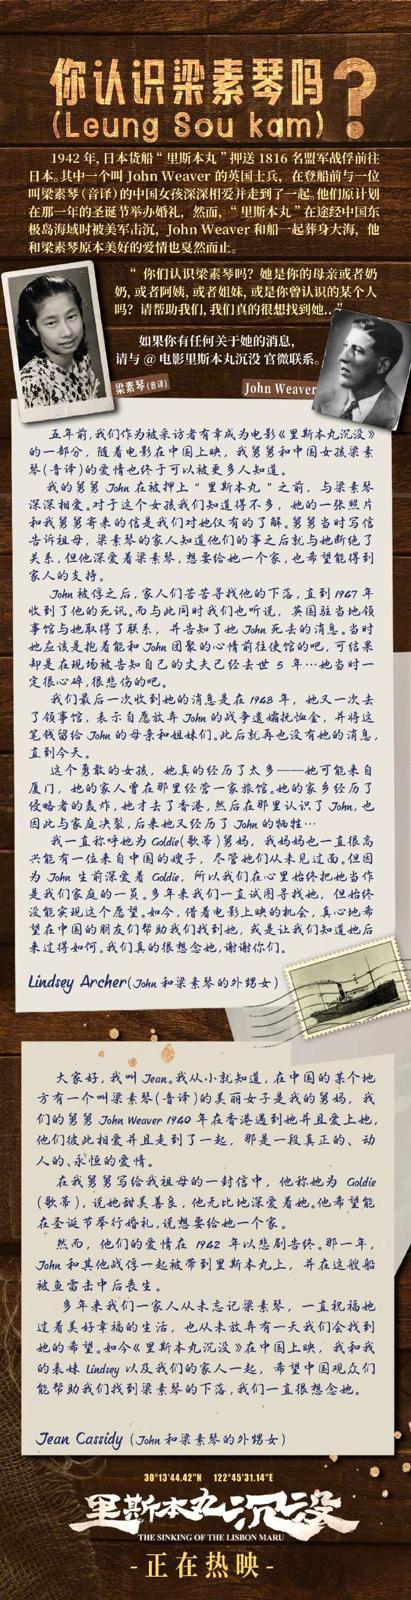 你认识梁素琴吗？
(Leung Sou kam)
1942 年，日本货船“里斯本丸”押送 1816 名盟军战俘前往
日本。其中一个叫 John Weaver 的英国士兵，在登船前与一位
叫梁素琴（音译）的中国女孩深深相爱并走到了一起。他们原计划
在那一年的圣诞节举办婚礼，然而，“里斯本丸”在途经中国东
极岛海域时被美军击沉，John Weaver 和船一起葬身大海，他
和梁素琴原本美好的爱情也戛然而止。
“你们认识梁素琴吗？她是你的母亲或者奶
奶，或者阿姨，或者姐妹，或是你曾认识的某个人
吗？请帮助我们，我们真的很想找到她..”
如果你有任何关于她的消息，
请与 @ 电影里斯本丸沉没 官微联系。
梁素琴（音译）
John Weaver
五年前，我们作为被采访者有幸成为电影《里斯本丸沉没》
的一部分，随着电影在中国上映，我舅舅和中国女孩梁素
琴（音译）的爱情也终于可以被更多人知道。
我的舅舅 John 在被押上“里斯本丸”之前，与梁素琴
深深相爱。对于这个女孩我们知道得不多，她的一张照片
和我舅舅寄来的信是我们对她仅有的了解。舅舅当时写信
告诉祖母，梁素琴的家人知道他们的事之后就与她断绝了
关系，但他深爱着梁素琴，想要给她一个家，也希望能得到
家人的支持。
John 被俘之后，家人们苦苦寻找他的下落，直到 1947 年
收到了他的死讯。而与此同时我们也听说，英国驻当地领
事馆与她取得了联系，并告知了她 John 死去的消息。当时
她应该是抱着能和 John 团聚的心情前往使馆的吧，可结果
却是在现场被告知自己的丈夫已经去世 5 年…她当时一
定很心碎，很悲伤的吧。
我们最后一次收到她的消息是在 1948 年，她又一次去
了领事馆，表示自愿放弃 John 的战争遗孀抚恤金，并将这
笔钱留给 John 的母亲和姐妹们。此后就再也没有她的消息，
直到今天。
这个勇敢的女孩，她真的经历了太多——她可能来自
厦门，她的家人曾在那里经营一家旅馆。她的家乡经历了
侵略者的轰炸，她才去了香港，然后在那里认识了 John，也
因此与家庭决裂，后来她又经历了 John 的牺牲…
我一直称呼她为 Goldie（歌蒂）舅妈，我妈妈也一直很高
兴能有一位来自中国的嫂子，尽管她们从未见过面。但因
为 John 生前深爱着 Goldie，所以我们在心里始终把她当作
是我们家庭的一员。多年来我们一直试图寻找她，但始终
没能实现这个愿望。如今，借着电影上映的机会，真心地希
望在中国的朋友们帮助我们找到她，或是让我们知道她后
来过得如何。我们真的很想念她，谢谢你们。
Lindsey Archer（John 和梁素琴的外甥女）
大家好，我叫 Jean。我从小就知道，在中国的某个地
方有一个叫梁素琴（音译）的美丽女子是我的舅妈，我
们的舅舅 John Weaver 1940 年在香港遇到她并且爱上她，
他们彼此相爱并且走到了一起，那是一段真正的、动
人的、永恒的爱情。
在我舅舅写给我祖母的一封信中，他称她为 Goldie
（歌蒂），说她甜美善良，他无比地深爱着她。他希望能
在圣诞节举行婚礼，说想要给她一个家。
然而，他们的爱情在 1942 年以悲剧告终。那一年，
John 和其他战俘一起被带到里斯本丸上，并在这艘船
被鱼雷击中后丧生。
多年来我们一家人从未忘记梁素琴，一直祝福她
过着美好幸福的生活，也从未放弃有一天我们会找到
她的希望。如今《里斯本丸沉没》在中国上映，我和我
的表妹 Lindsey 以及我们的家人一起，希望中国观众们
能帮助我们找到梁素琴的下落，我们一直很想念她。
Jean Cassidy（John 和梁素琴的外甥女）
30°13'44.42"N 122°45'31.14"E
里斯本丸沉没
THE SINKING OF THE LISBON MARU
-正在热映-